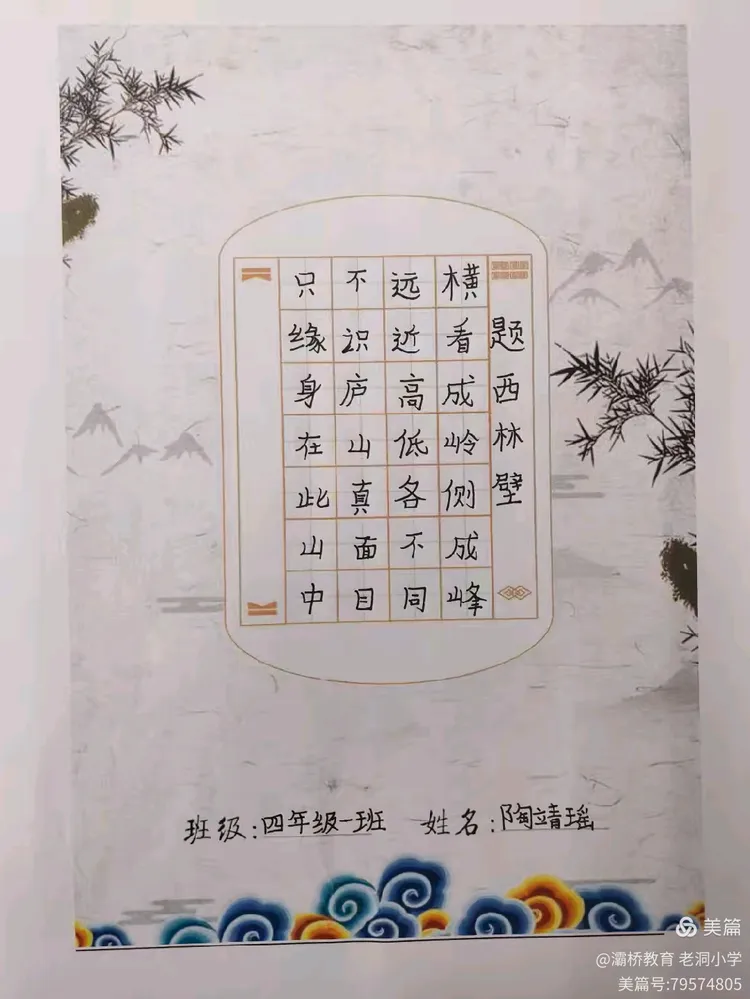 题西林壁
横看成岭侧成峰
远近高低各不同
不识庐山真面目
只缘身在此山中
班级:四年级一班 姓名:陶靖瑶
美篇
@灞桥教育 老洞小学
美篇号:79574805